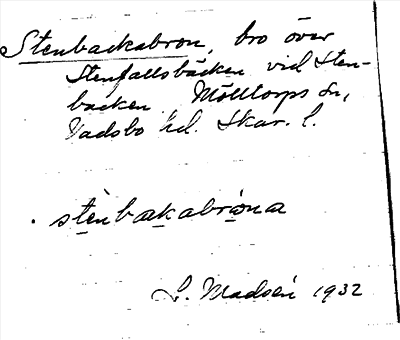 Stenbackabron, bro över
Stenfallsbäcken vid Sten-
backen Mölltorps sn,
Vadsbo hd. Skar. l.
stènbackabròna
L. Madsén 1932